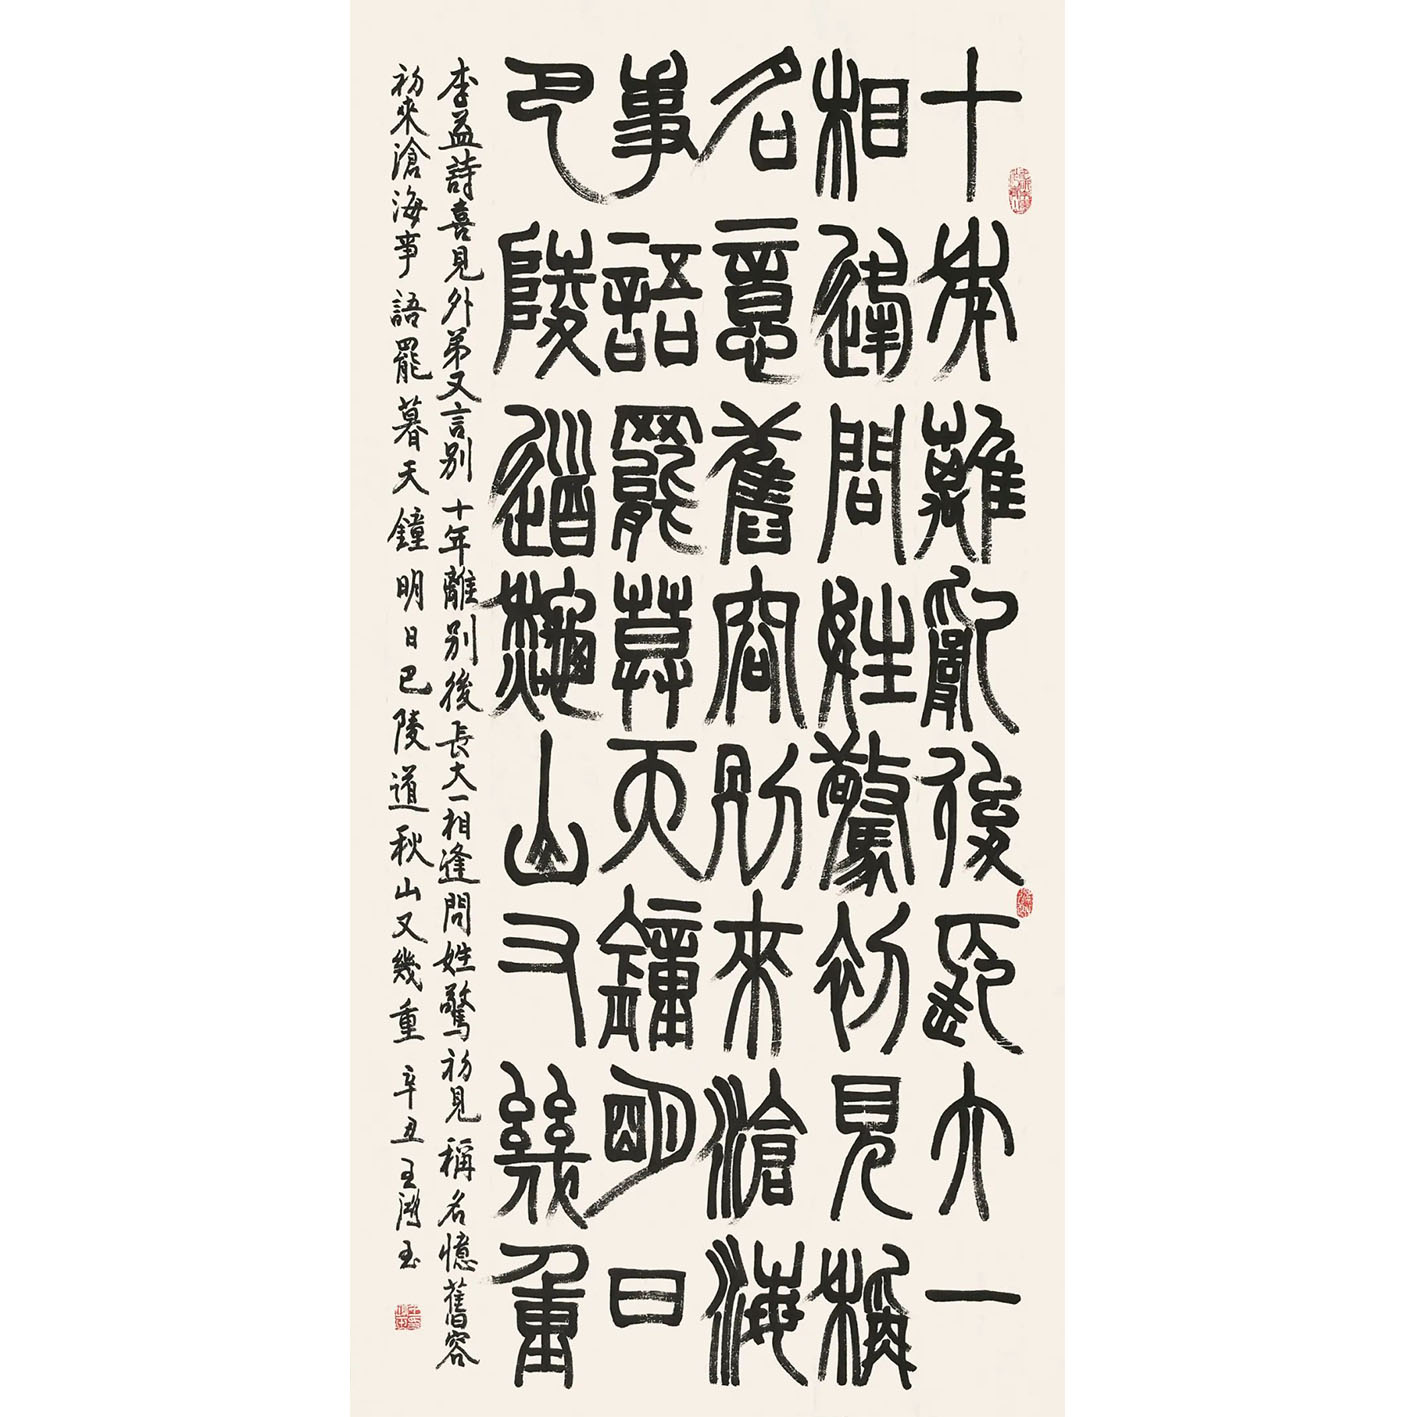 十年離亂後長大一
相逢問姓驚初見稱
名意舊容別來滄海
事語罷暮天鐘明日
巴陵道秋山又幾重
李益詩喜見外弟又言別 十年離別後長大一相逢問姓驚初見稱名憶舊容
初來滄海事語罷暮天鐘明日巴陵道秋山又幾重 辛丑王鴻玉